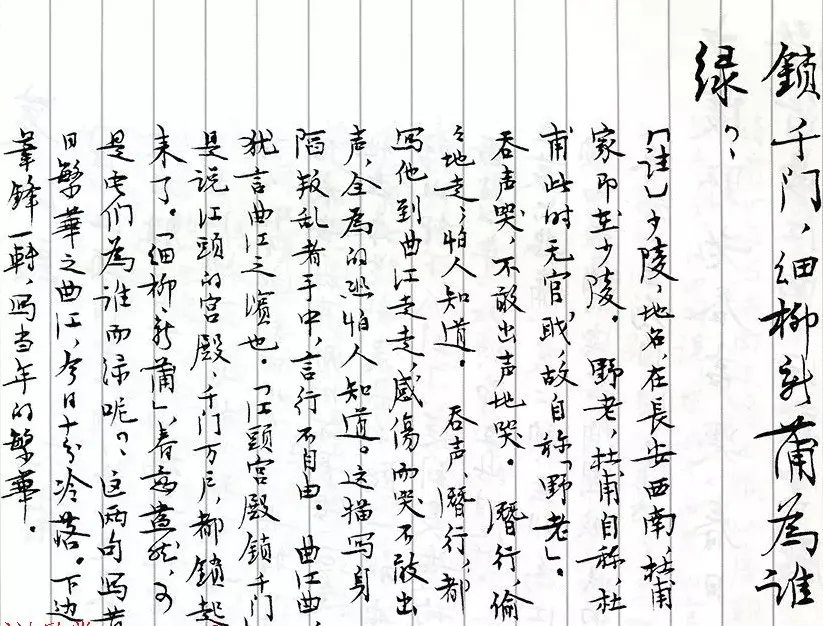 鎖千门，细柳新蒲為谁
绿？
【註】少陵，地名，在長安西南，杜甫
家即在少陵。野老，杜甫自称，杜
甫此时无官职，故自称「野老」。
吞声哭，不敢出声地哭。潛行，偷
偷地走，怕人知道。吞声，潛行，都
写他到曲江走走，感傷而哭不敢出
声，全為的恐怕人知道。这描写身
陷叛乱者手中，言行不自由。曲江曲，
犹言曲江之濱也。「江頭宫殿鎖千门」
是说江頭的宫殿，千门万户，都鎖起
来了。「细柳新蒲」，春意盎然，可
是它们為谁而绿呢？这两句写昔
日繁華之曲江，今日十分冷落。下边
筆鋒一轉，写当年的繁華。